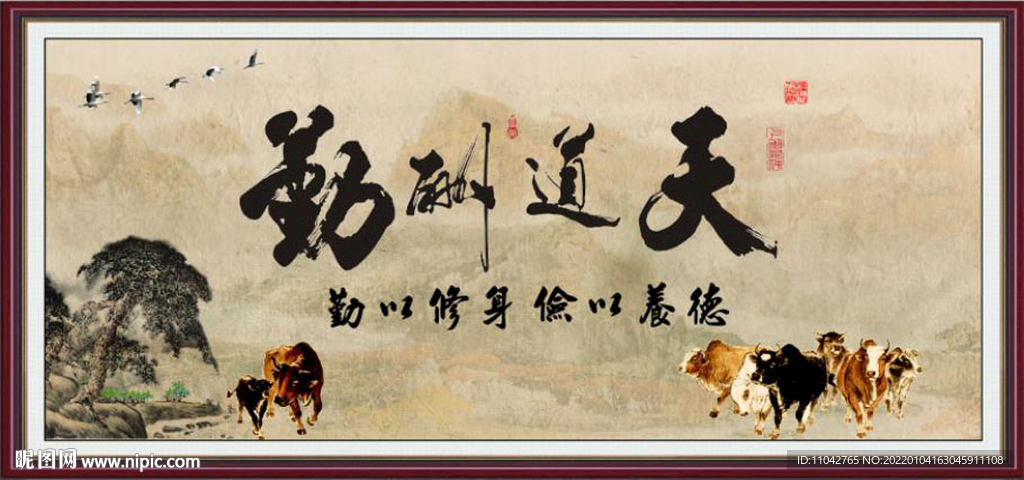 天道酬勤
勤以修身儉以養德
昵图网 www.nipic.com
ID:11042765 NO:20220104163045911108